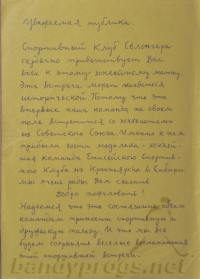 Уважаемая публика.
Спортивный Клуб Сельнгера
сердечно приветствует Вас
всех к этому хоккейному матчу.
Эта встреча может назваться
исторической. Потому что это
впервые наша команда на своем
поле встретится с хоккеистами
из Советского Союза. Именно к нам
прибыли гости
команда Енисейского спортив-
ного Клуба из Красноярска в Сибири.
мы очень рады Вам сказать
Добро пожаловать!
Надеемся что это состязание обеим
командам принесет спортивную и
дружескую пользу. И что мы все
будем сохранять веселые воспоминания
этой спортивной встречи.
bandyprogs.net